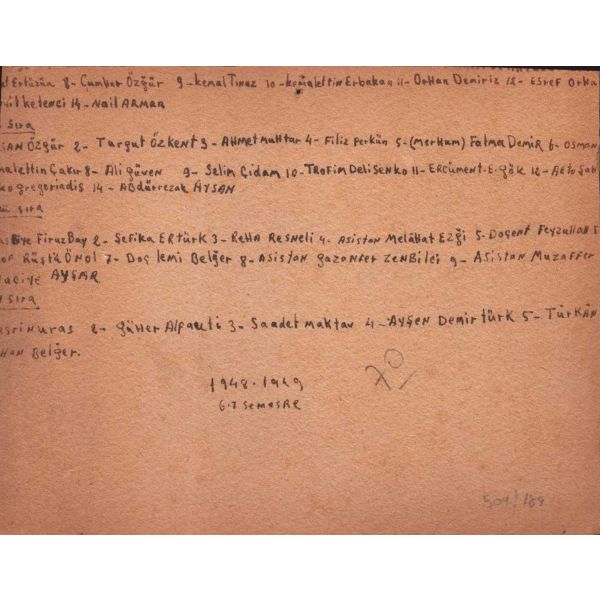 Ertürün 8- Cumhur Özgür 9- Kemal Tınaz 10- Kemalettin Erbakan 11- Orhan Demiriz 12- Eşref Orha
Kelenci 14- Nail ARMAN
Sıra
SAN ÖZGÜR 2- Turgut Özkent 3- AHmet muhtar 4- Filiz Perkün 5- (merhum) Fatma Demir 6- OSMAN
malettin Çakır 8- Ali güven 9- Selim Çidam 10- Trofim Delisenko 11- Ercüment.E.gök 12-
ko gregoriadis 14- Abdürrezak AYSAN
Sıra
FiruzBay 2- Sefika ERtürk 3- ReHA Resneli 4- Asistan Melâhat Ezgi 5- Doçent Feyzullah
of Rüştü Önol 7- Doç lemi Belger 8- Asistan gazanfer Zenbilci 9- Asistan Muzaffer
AYŞAR
Sıra
uras 2- 3- Saadet maktav 4- AYşen Demirtürk 5- Türkân
HAN Belğer.
1948-1949
6.I Semestre
70
504/189